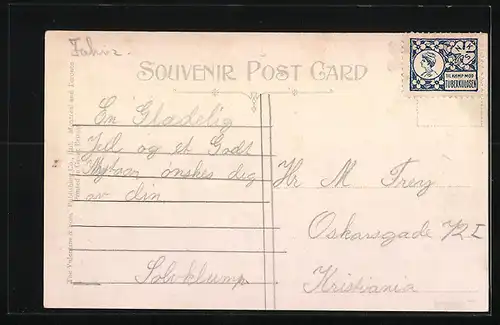 SOUVENIR POST CARD
TIL KAMP MOD
TUBERKULOSEN
En Glædelig
Jul og et Godt
Nytaar ønskes dig
av din
Solvklump
Hr M
Oskarsgade 72 I
Kristiania